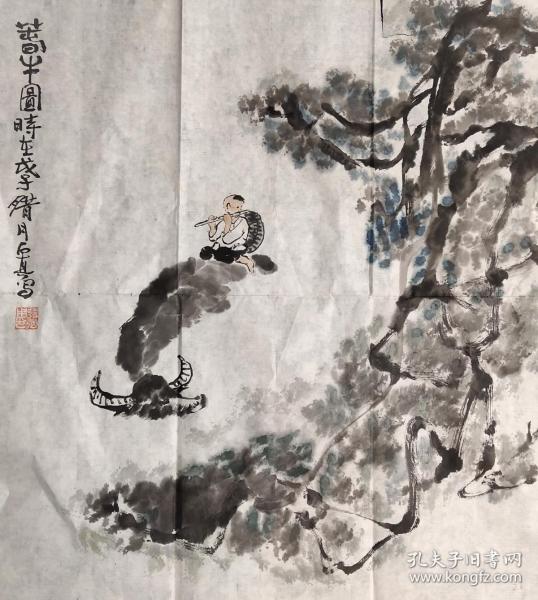 春牛圖時在戊子腊月
孔夫子旧书网
www.kongfz.com